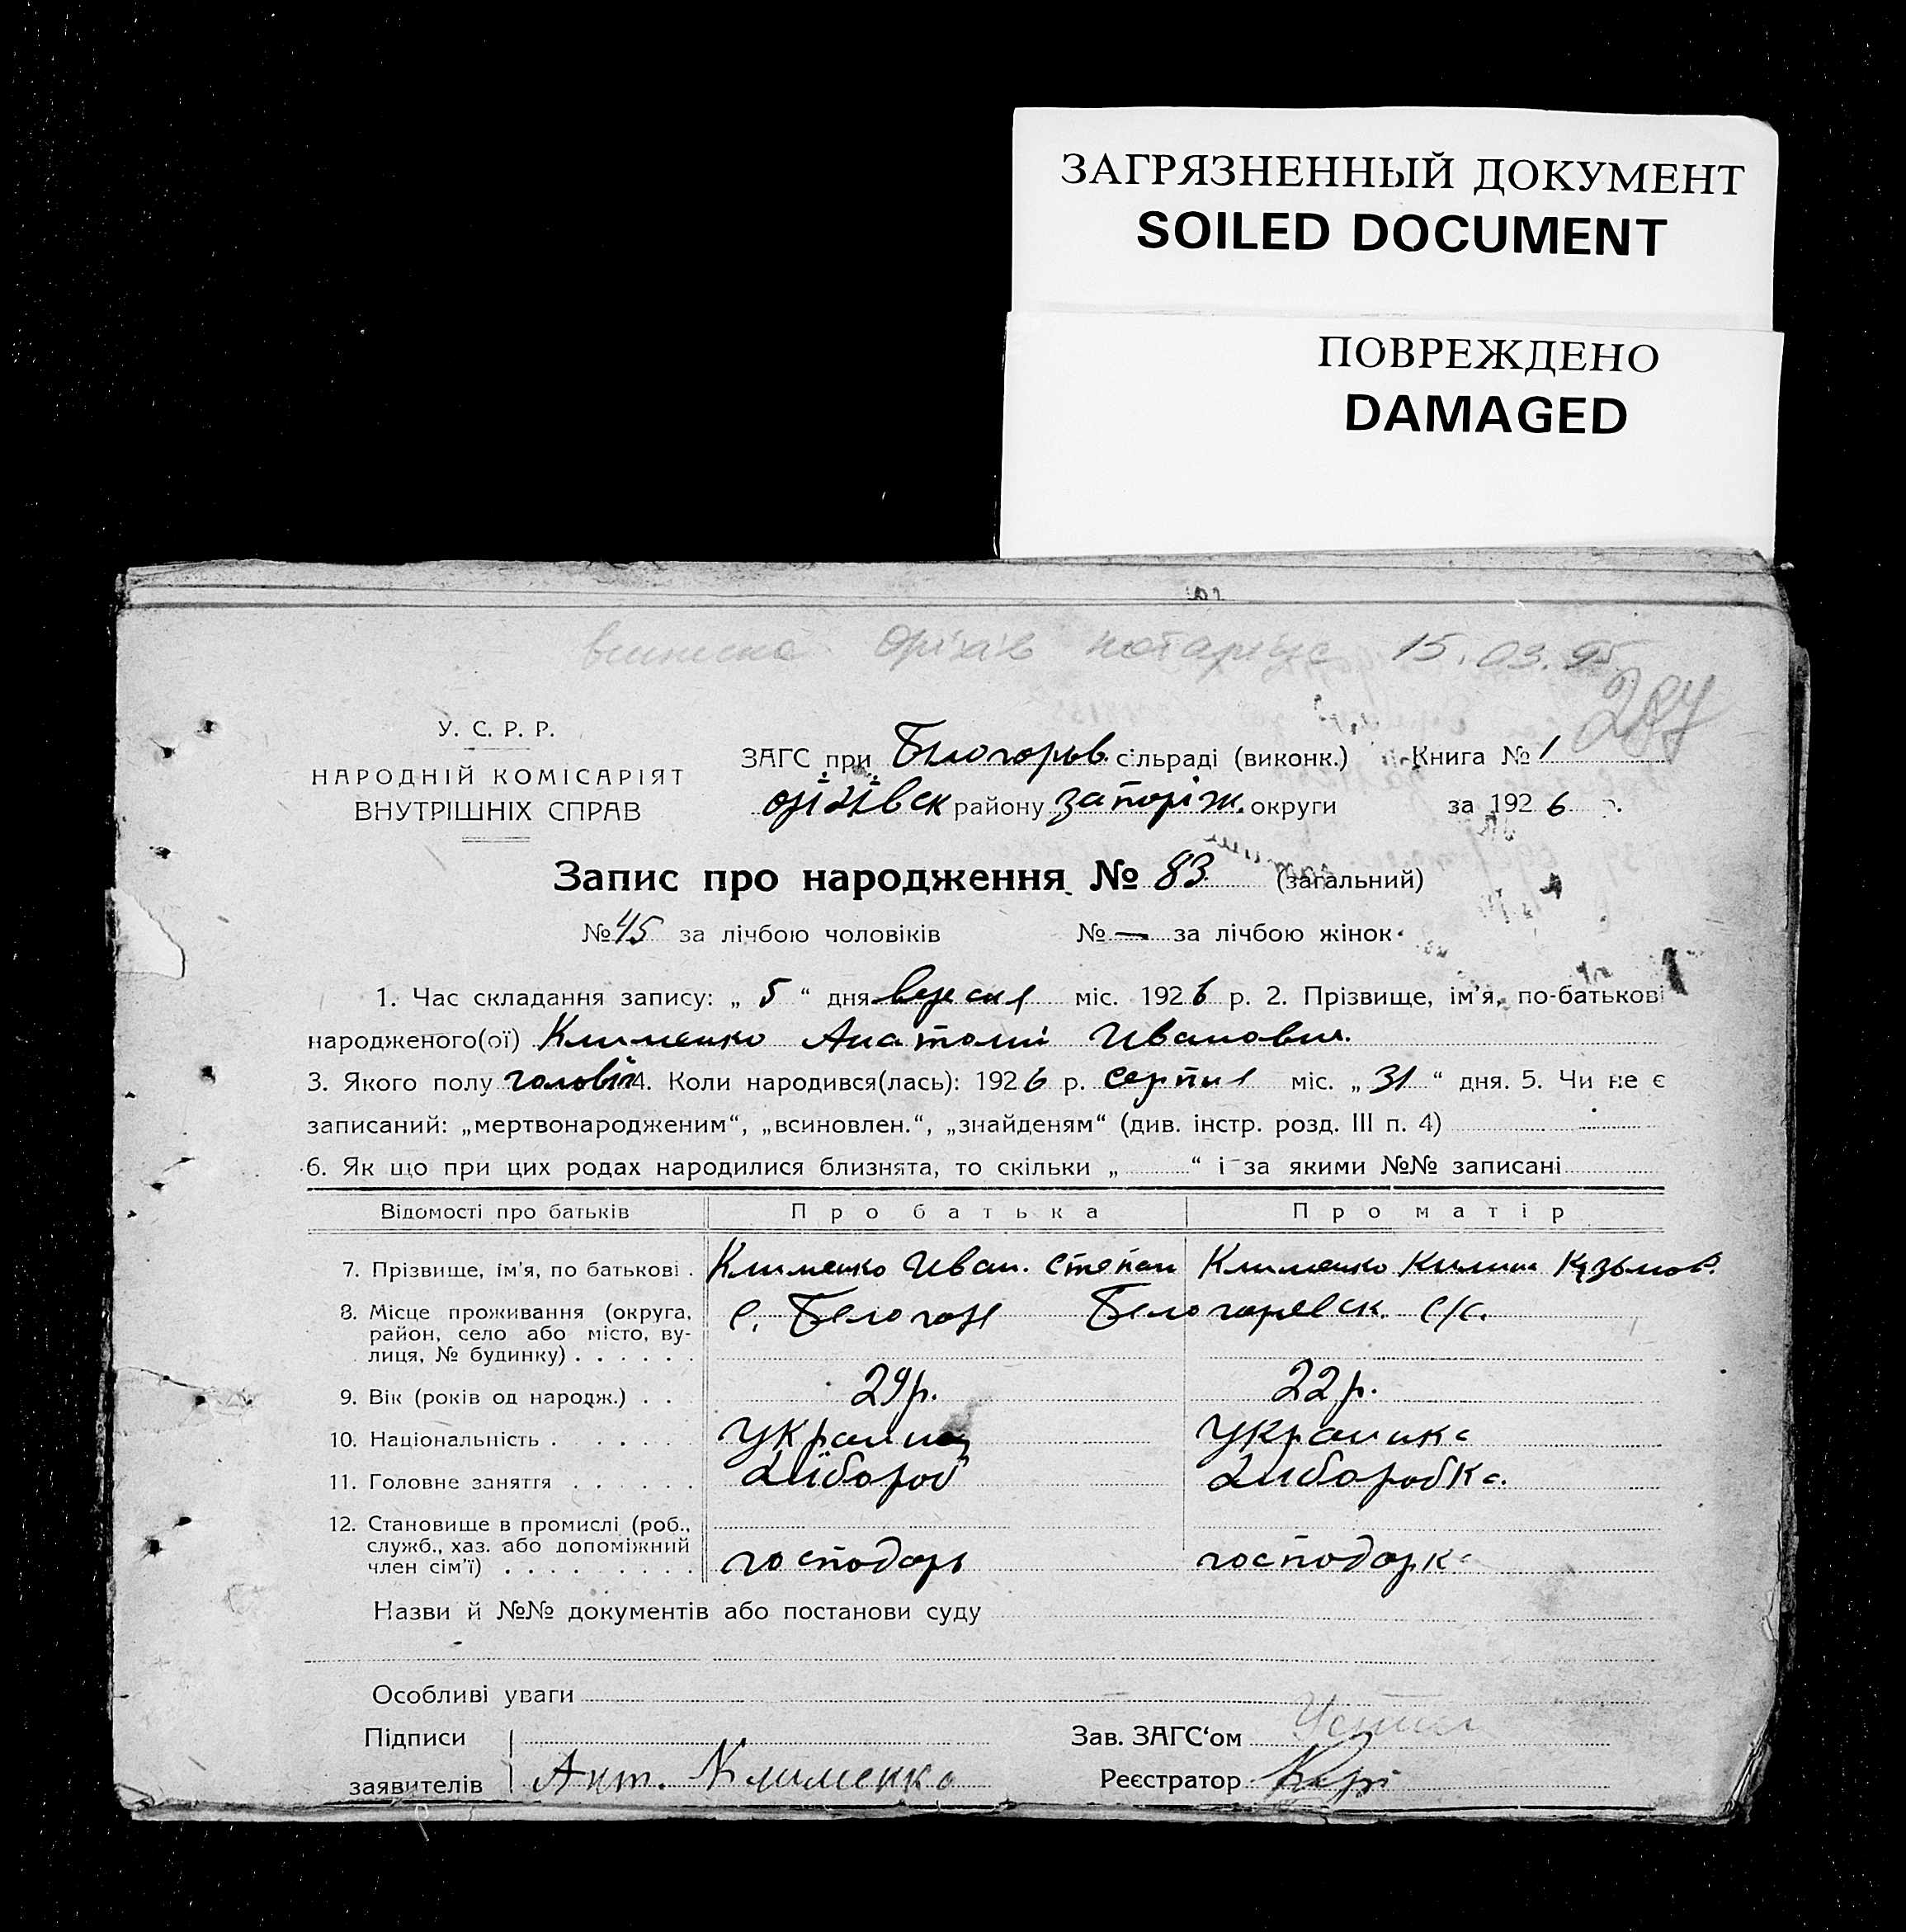 ЗАГРЯЗНЕННЫЙ ДОКУМЕНТ
SOILED DOCUMENT
ПОВРЕЖДЕНО
DAMAGED
виписка Оріхів нотаріус 15.03.95
У. С. Р. Р.
НАРОДНІЙ КОМІСАРІЯТ
ВНУТРІШНІХ СПРАВ
ЗАГС при Білогорьв. сільраді (виконк.) Книга № 1
оріхівск району запоріж. округи за 1926 р.
Запис про народження № 83 (загальний)
№ 45 за лічбою чоловіків № — за лічбою жінок
1. Час складання запису: „ 5 “ дня вересня міс. 1926 р. 2. Прізвище, ім’я, по-батькові
народженого(ої) Клименко Анатолій Иванович.
3. Якого полу чоловіч 4. Коли народився(лась): 1926 р. серпня міс. „ 31 “ дня. 5. Чи не є
записаний: „мертвонародженим“, „всиновлен.“, „знайденям“ (див. інстр. розд. III п. 4)
6. Як що при цих родах народилися близнята, то скільки „ “ і за якими №№ записані
Відомості про батьків Про батька Про матір
7. Прізвище, ім’я, по батькові . Клименко Иван. Степан Клименко Килин Кузьмов.
8. Місце проживання (округа, район, село або місто, вулиця, № будинку) . . . . . . с. Белогорє Белогоревск. с/с.
9. Вік (років од народж.) . . 29 р. 22 р.
10. Національність . . . . . . українец українка
11. Головне заняття . . . . . . хлібороб хлиборобка.
12. Становище в промислі (роб., служб., хаз. або допоміжний член сім’ї) . . . . . . . . . господарь господарка
Назви й №№ документів або постанови суду
Особливі уваги
Підписи Зав. ЗАГС‘ом
заявителів Ант. Клименко Реєстратор